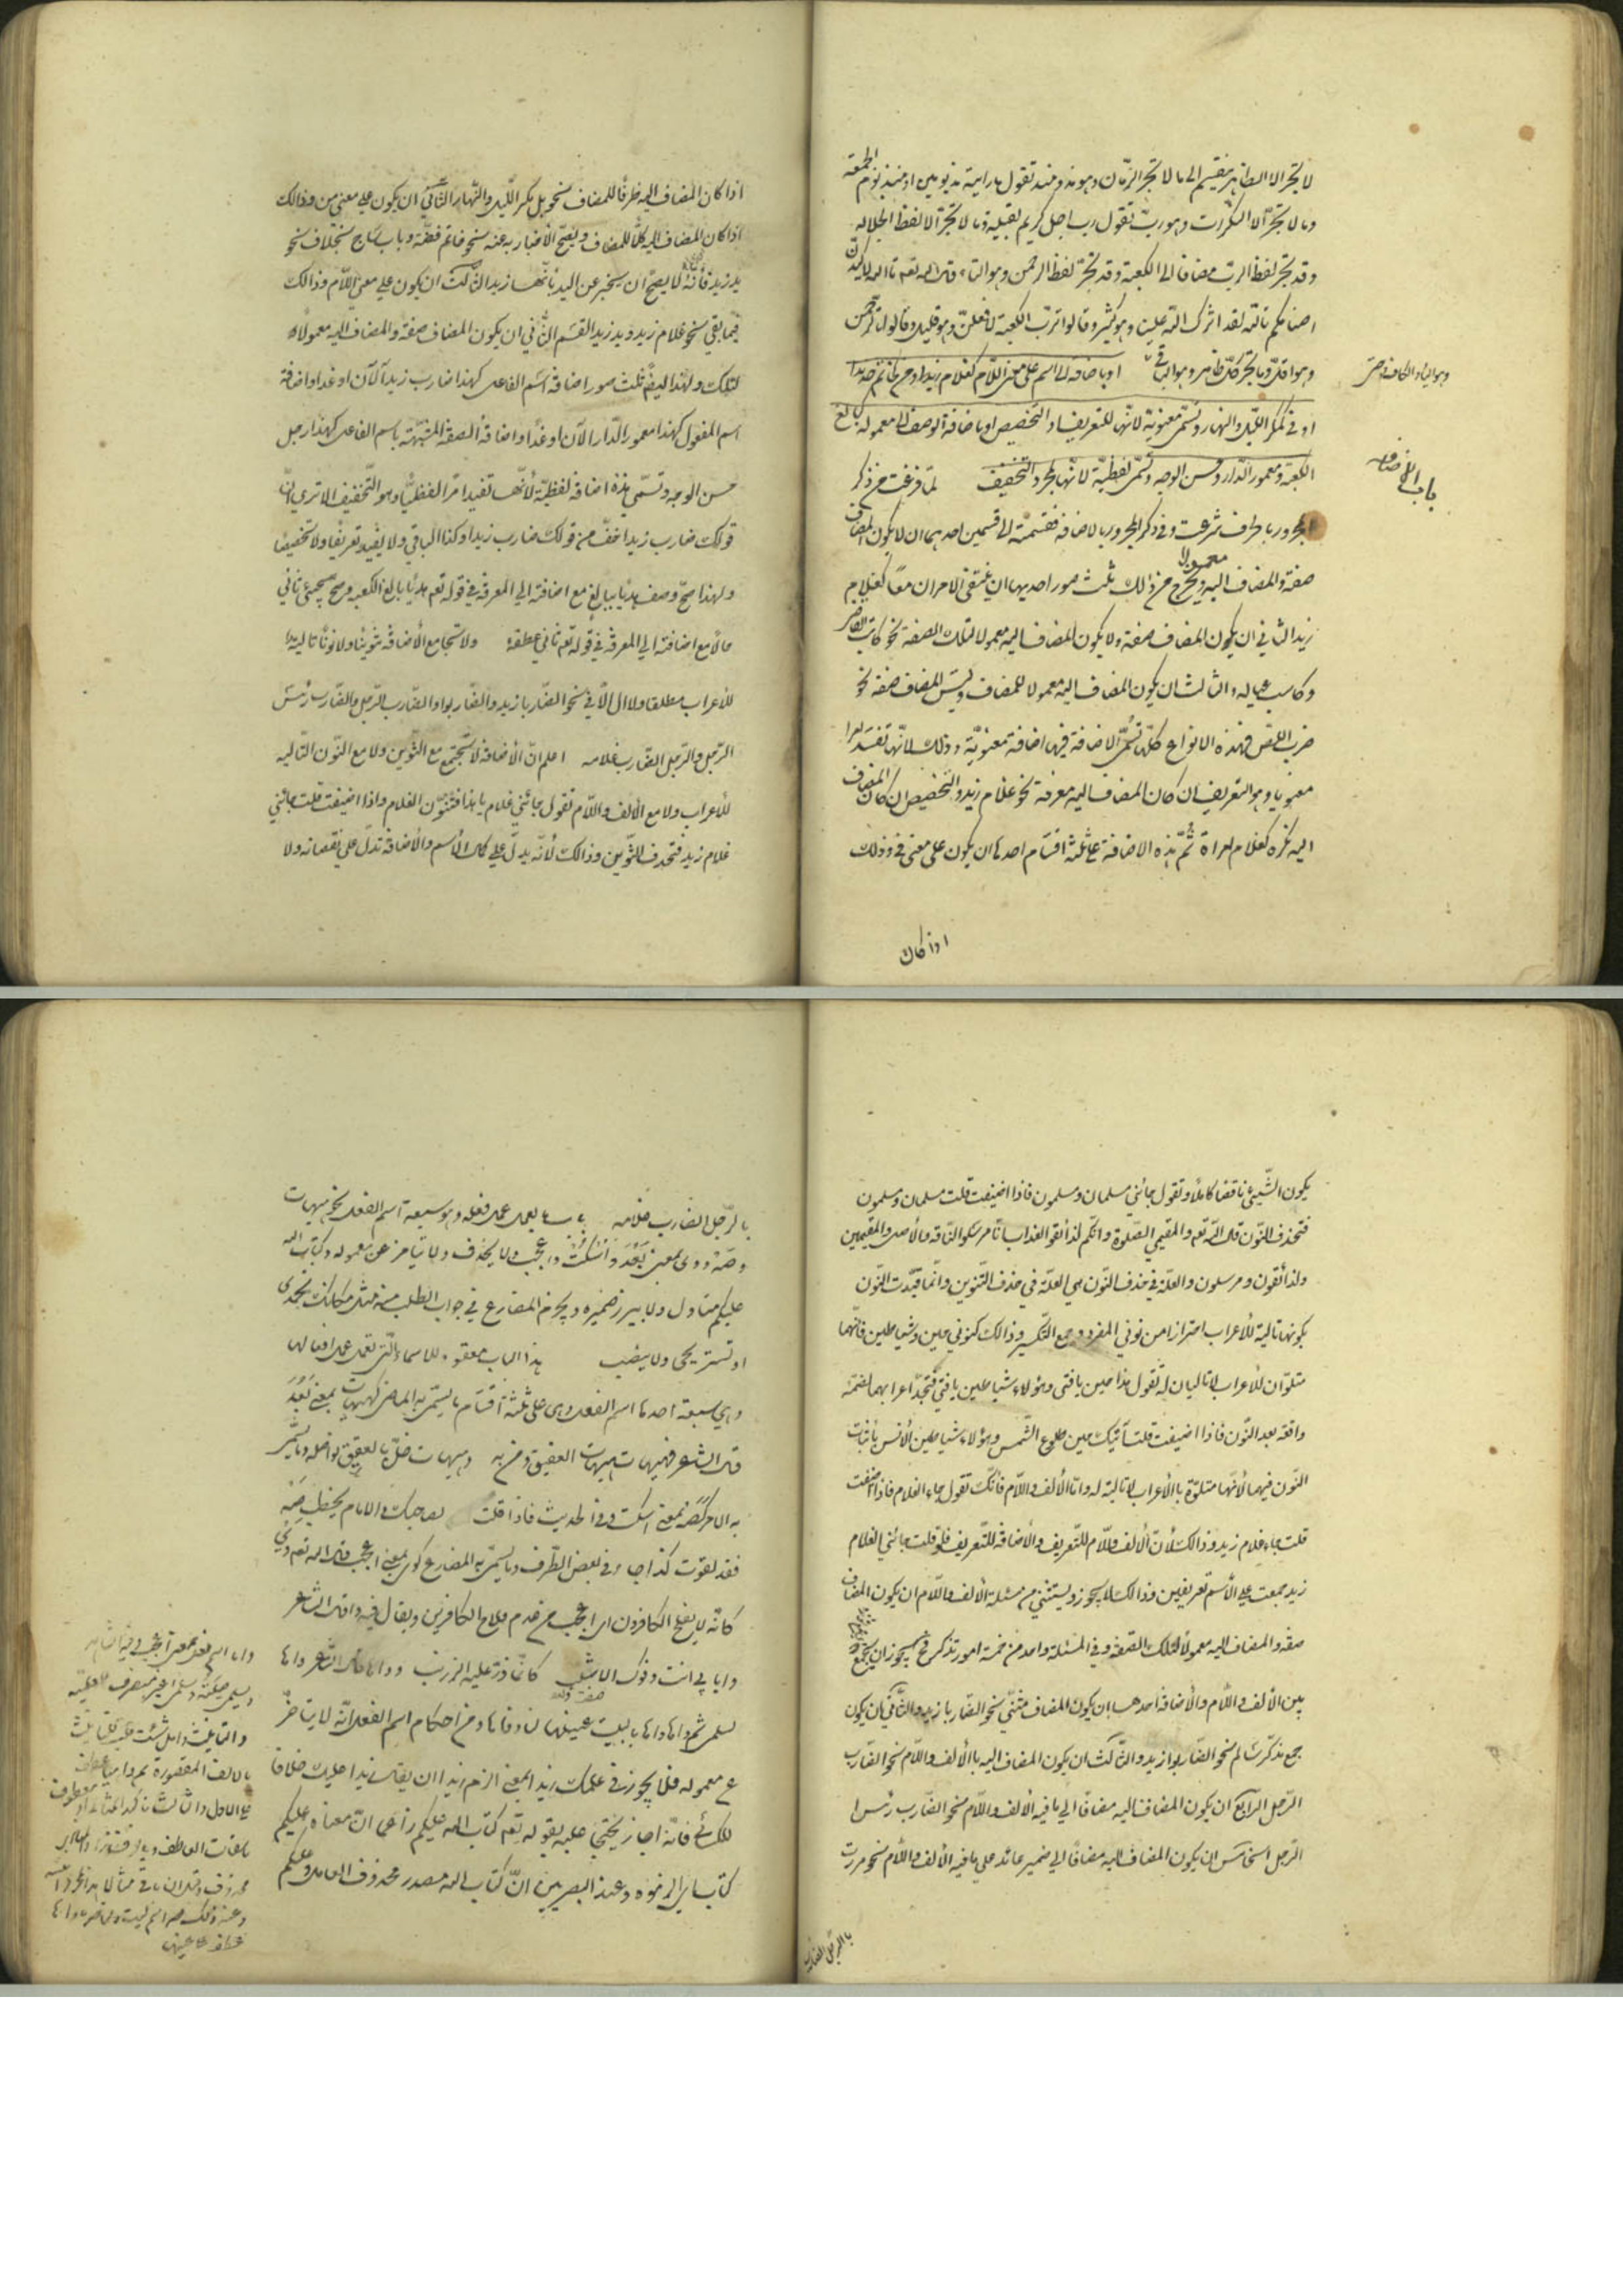 لا تجر الا الظاهر ينقسم الى ما لا تجر الا الزمان وهو مذ ومنذ تقول ما رايته مذ يومين او منذ يوم الجمعة
وما لا تجر الا النكرات وهو رب تقول رب رجل كريم لقيته وما لا تجر الا لفظ الجلالة
وقد تجر لفظ الرب مضافا الى الكعبة وقد تجر لفظ الرحمن وهو التاء قال الله تعم تا الله لاكيدن
اصنامكم تالله لقد اثرك الله علينا وهو كثير وقالوا ترب الكعبة لافعلن وهو قليل وقالوا تالرحمن
وهو اقل وما تجر كل ظاهر وهو الباقي او باضافة الى اسم على معنى اللام كغلام زيد او من كخاتم حديد
او في كمكر الليل والنهار وتسمى معنوية لانها للتعريف او التخصيص او باضافة الوصف الى معموله كبالغ
الكعبة ومعمور الدار وحسن الوجه وتسمى لفظية لانها لمجرد التخفيف لما فرغت من ذكر
المجرور بالحرف شرعت في ذكر المجرور بالاضافة فقسمته الى قسمين احدهما ان لا يكون المضاف
صفة والمضاف اليه معمولا ويخرج من ذلك ثلث صور احديها ان ينتفى الامران معا كغلام
زيد الثاني ان يكون المضاف صفة ولا يكون المضاف اليه معمولا لتلك الصفة نحو كاتب القاضي
وكاسب عياله والثالث ان يكون المضاف اليه معمولا للمضاف وليس المضاف صفة نحو
ضرب اللص فهذه الانواع كلها تسمى الاضافة فيها اضافة معنوية وذلك لانها تفيد امرا
معنويا وهو التعريف ان كان المضاف اليه معرفة نحو غلام زيد والتخصيص ان كان المضاف
اليه نكرة كغلام امراة ثم هذه الاضافة على ثلثة اقسام احدها ان يكون على معنى في وذلك
اذا كان
باب الاضافه
اذا كان المضاف اليه ظرفا للمضاف نحو بل مكر الليل والنهار الثاني ان يكون علي معنى من وذالك
اذا كان المضاف اليه كلا للمضاف ويصح الاخبار به عنه نحو خاتم فضة وباب ساج بخلاف نحو
يد زيد فأنه لا يصح ان يخبر عن اليد بأنها زيد الثالث ان يكون علي معنى اللام وذالك
فيما بقي نحو غلام زيد ويد زيد القسم الثاني ان يكون المضاف صفة والمضاف اليه معمولا
لتلك ولهذا ايضا ثلث صور اضافة اسم الفاعل كهذا ضارب زيد الآن او غدا واضافة
اسم المفعول كهذا معمور الدار الآن او غدا واضافة الصفة المشبهة باسم الفاعل كهذا رجل
حسن الوجه وتسمي هذه اضافة لفظية لأنها تفيد امرا لفظيا وهو التخفيف الا ترى ان
قولك ضارب زيد اخف من قولك ضارب زيدا وكذا الباقي ولا يفيد تعريفا ولا تخصيصا
ولهذا صح وصف هديا ببالغ مع اضافته الي المعرفة في قوله تعم هديا بالغ الكعبه وصح مجئ ثاني
حالا مع اضافته الي المعرفة في قوله تعم ثاني عطفه ولا تجامع الأضافة تنوينا ولا نونا تاليه
للأعراب مطلقا ولا ال الا في نحو الضاربا زيد والضاربوا والضارب الرجل والضارب رأس
الرجل والرجل الضارب غلامه اعلم ان الأضافة لا تجتمع مع التنوين ولا مع النون التاليه
للأعراب ولا مع الألف واللام تقول جائني غلام يا هذا فتنون الغلام واذا اضيفت قلت جائني
غلام زيد فتحذف التنوين وذالك لأنه يدل علي كمال الأسم والأضافة تدل علي نقصانه ولا
يكون الشيئ ناقصا كاملا وتقول جائني مسلمان ومسلمون فاذا اضيفت قلت مسلمان ومسلمون
فتحذف النون قال الله تعم والمقيمي الصلوة وانكم لذائقوا العذاب انا مرسلوا الناقة والأصل والمقيمين
ولذائقون ومرسلون والعلة في حذف النون هي العلة في حذف التنوين وانما قيدت النون
بكونها تالية للأعراب احترازا من نوني المفرد وجمع التكسير وذالك كنوني حين وشياطين فانهما
متلوان للأعراب لا تاليان له تقول هذا حين يا فتى وهؤلاء شياطين يا فتي فتجد اعرابهما بضمة
واقعة بعد النون فاذا اضيفت قلت آتيك حين طلوع الشمس وهؤلاء شياطين الأنس بأثبات
النون فيهما لأنها متلوة بالأعراب لا تالية له واما الألف واللام فانك تقول جاء الغلام فاذا اضفت
قلت جاء غلام زيد وذالك لأن الألف واللام للتعريف والأضافة للتعريف فلو قلت جائني الغلام
زيد جمعت علي الأسم تعريفين وذالك لا يجوز ويستثني من مسئلة الألف واللام ان يكون المضاف
صفة والمضاف اليه معمولا لتلك الصفة وفي المسئلة واحد من خمسة امور تذكر فح يجوز ان يجمع
بين الألف واللام والأضافة احدها ان يكون المضاف مثني نحو الضاربا زيد والثاني ان يكون
جمع مذكر سالم نحو الضاربوا زيد والثالث ان يكون المضاف اليه بالألف واللام نحو الضارب
الرجل الرابع ان يكون المضاف اليه مضافا الي ما فيه الألف واللام نحو الضارب رأس
الرجل الخامس ان يكون المضاف اليه مضافا الي ضمير عائد علي ما فيه الألف واللام نحو مررت
بالرجل الضارب
بالرجل الضارب غلامه باب ما يعمل عمل فعله وهو سبعة اسم الفعل نحو هيهات
وصه ووى بمعنى بعد واسكت واعجب ولا يحذف ولا يتأخر عن معموله وكتاب الله
عليكم متاول ولا يبرز ضميره ويجزم المضارع في جواب الطلب منه نحو مكانك تحمدي
او تستريحى ولا ينصب هذا الباب معقود للاسماء التى تعمل عمل افعالها
وهي سبعة احدها اسم الفعل وهى على ثلثة اقسام ما يسمى به الماضى كهيهات بمعنى بعد
قال الشاعر فهيهات هيهات العقيق ومن به وهيهات خل بالعقيق نواصله وما يسمى
به الامر كصه بمعنى اسكت وفى الحديث فاذا قلت لصاحبك والامام يخطب صه
فقد لغوت كذا جاء في بعض الطرف وما يسمى به المضارع كوى بمعنى اعجب قال الله تعم وي
كانه لا يفلح الكافرون اى اعجب من عدم فلاح الكافرين ويقال فيه وا قال الشاعر
وا بابي انت وفوك الاشنب كانما ذر عليه الزرنب وواها قال الشاعر واها
لسلمى ثم واها واها يا ليت عيناها لنا وفاها ومن احكام اسم الفعل انه لا يتاخر
عن معموله فلا يجوز في عليك زيدا بمعنى الزم زيدا ان يقال زيدا عليك خلافا
للكسائي فانه اجازه محتجا عليه بقوله تعم كتاب الله عليكم زاعما ان معناه عليكم
كتاب الله اى الزموه وعند البصريين ان كتاب الله مصدر محذوف العامل وعليكم